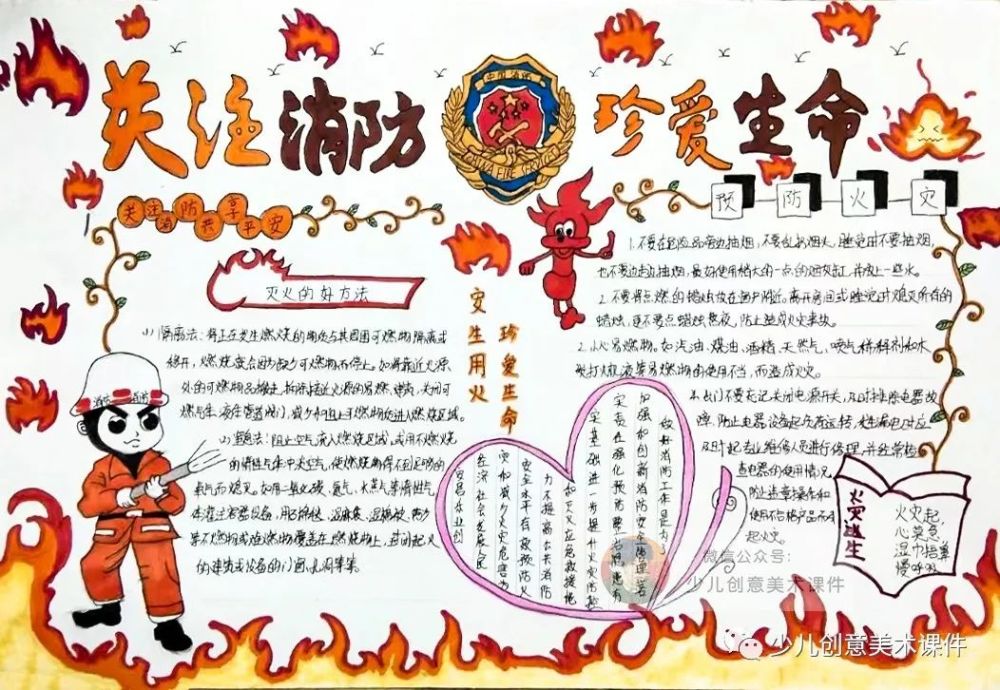 关注消防
珍爱生命
中国消防
CHINA FIRE SERVICES
关注消防共享平安
预防火灾
灭火的好方法
(1)隔离法:将正在发生燃烧的物质与其周围可燃物隔离或
移开,燃烧就会因为缺少可燃物而停止。如将靠近火源
处的可燃物品搬走,拆除接近火源的易燃建筑,关闭可
燃气体、液体管道阀门,减少和阻止可燃物质进入燃烧区域。
(2)窒息法:阻止空气流入燃烧区域,或用不燃烧
的惰性气体冲淡空气,使燃烧物得不到足够的
氧气而熄灭。如用二氧化碳、氮气、水蒸气等惰性气
体灌注容器设备,用石棉毯、湿麻袋、湿棉被、黄沙
等不燃物或难燃物覆盖在燃烧物上,封闭起火
的建筑或设备的门窗、孔洞等等。
珍爱生命
安全用火
1.不要在危险品旁边抽烟,不要乱扔烟头,睡觉时不要抽烟,
也不要边走边抽烟,最好使用稍大的一点的烟灰缸,并放上一些水。
2.不要将点燃的蜡烛放在窗户附近。离开房间或睡觉时熄灭所有的
蜡烛,更不要点蜡烛熬夜,防止造成火灾事故。
3.小心易燃物。如汽油、煤油、酒精、天然气、喷气
打火机液等易燃物的使用不当,而造成火灾。
4.出门不要忘记关闭电源开关,及时排除电器故
障,防止电器设备超负荷运转,发生漏电时应
及时报
查电器的使用情况,
防止违章操作和
使用不合格产品而引
起火灾。
做好消防工作是
加强和创新消防安全管理
实责任强化预防
实基础进一步提升火灾防控
和灭火应急救援能
力不断提高公共消防
安全水平有效预防火
灾和减少火灾危害为
经济社会发展人民
安居乐业创
火灾逃生
火灾起,
心莫急
湿巾捂鼻
慢呼吸
微信公众号:
少儿创意美术课件
少儿创意美术课件